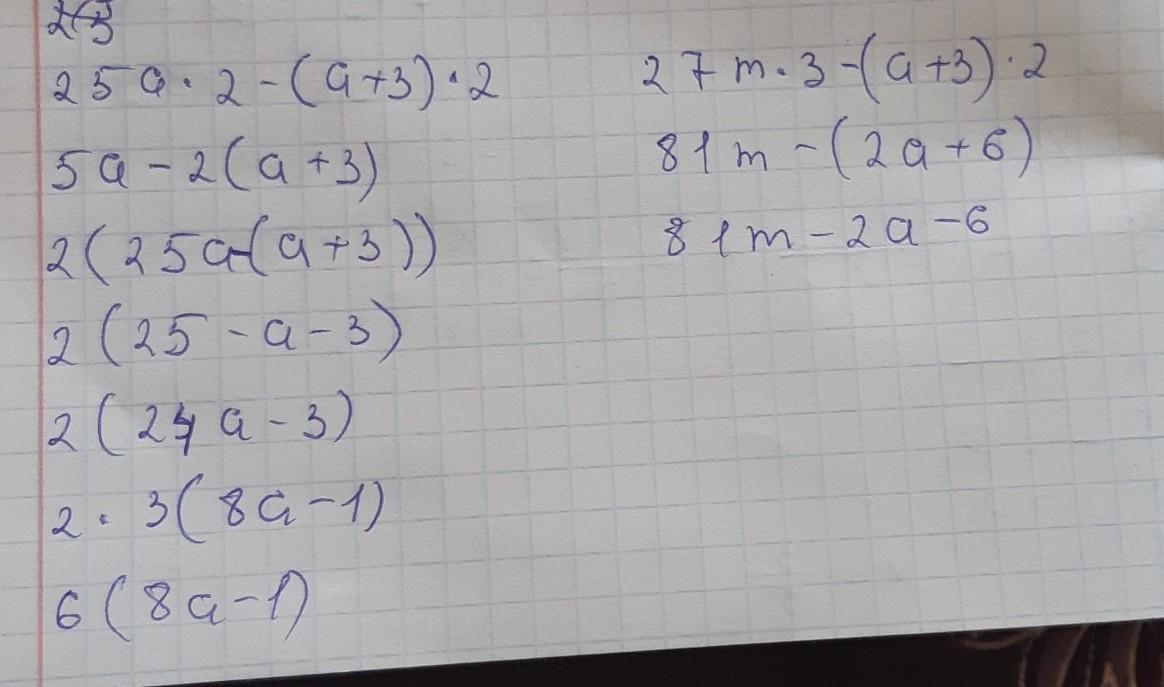 25a · 2 - (a+3) · 2
5a - 2(a+3)
2(25a-(a+3))
2(25 - a - 3)
2(24a - 3)
2 · 3(8a - 1)
6(8a - 1)
27m · 3 - (a+3) · 2
81m - (2a+6)
81m - 2a - 6